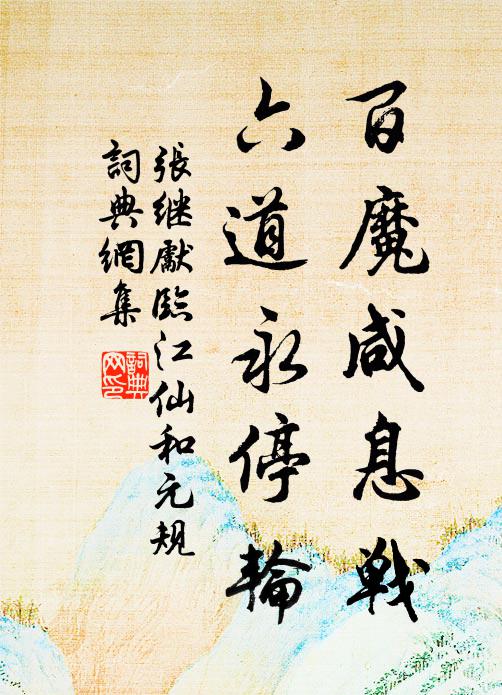 百魔咸息戦
六道永停輪
張继獻臨江仙和元规
詞典網集
詞典
网印